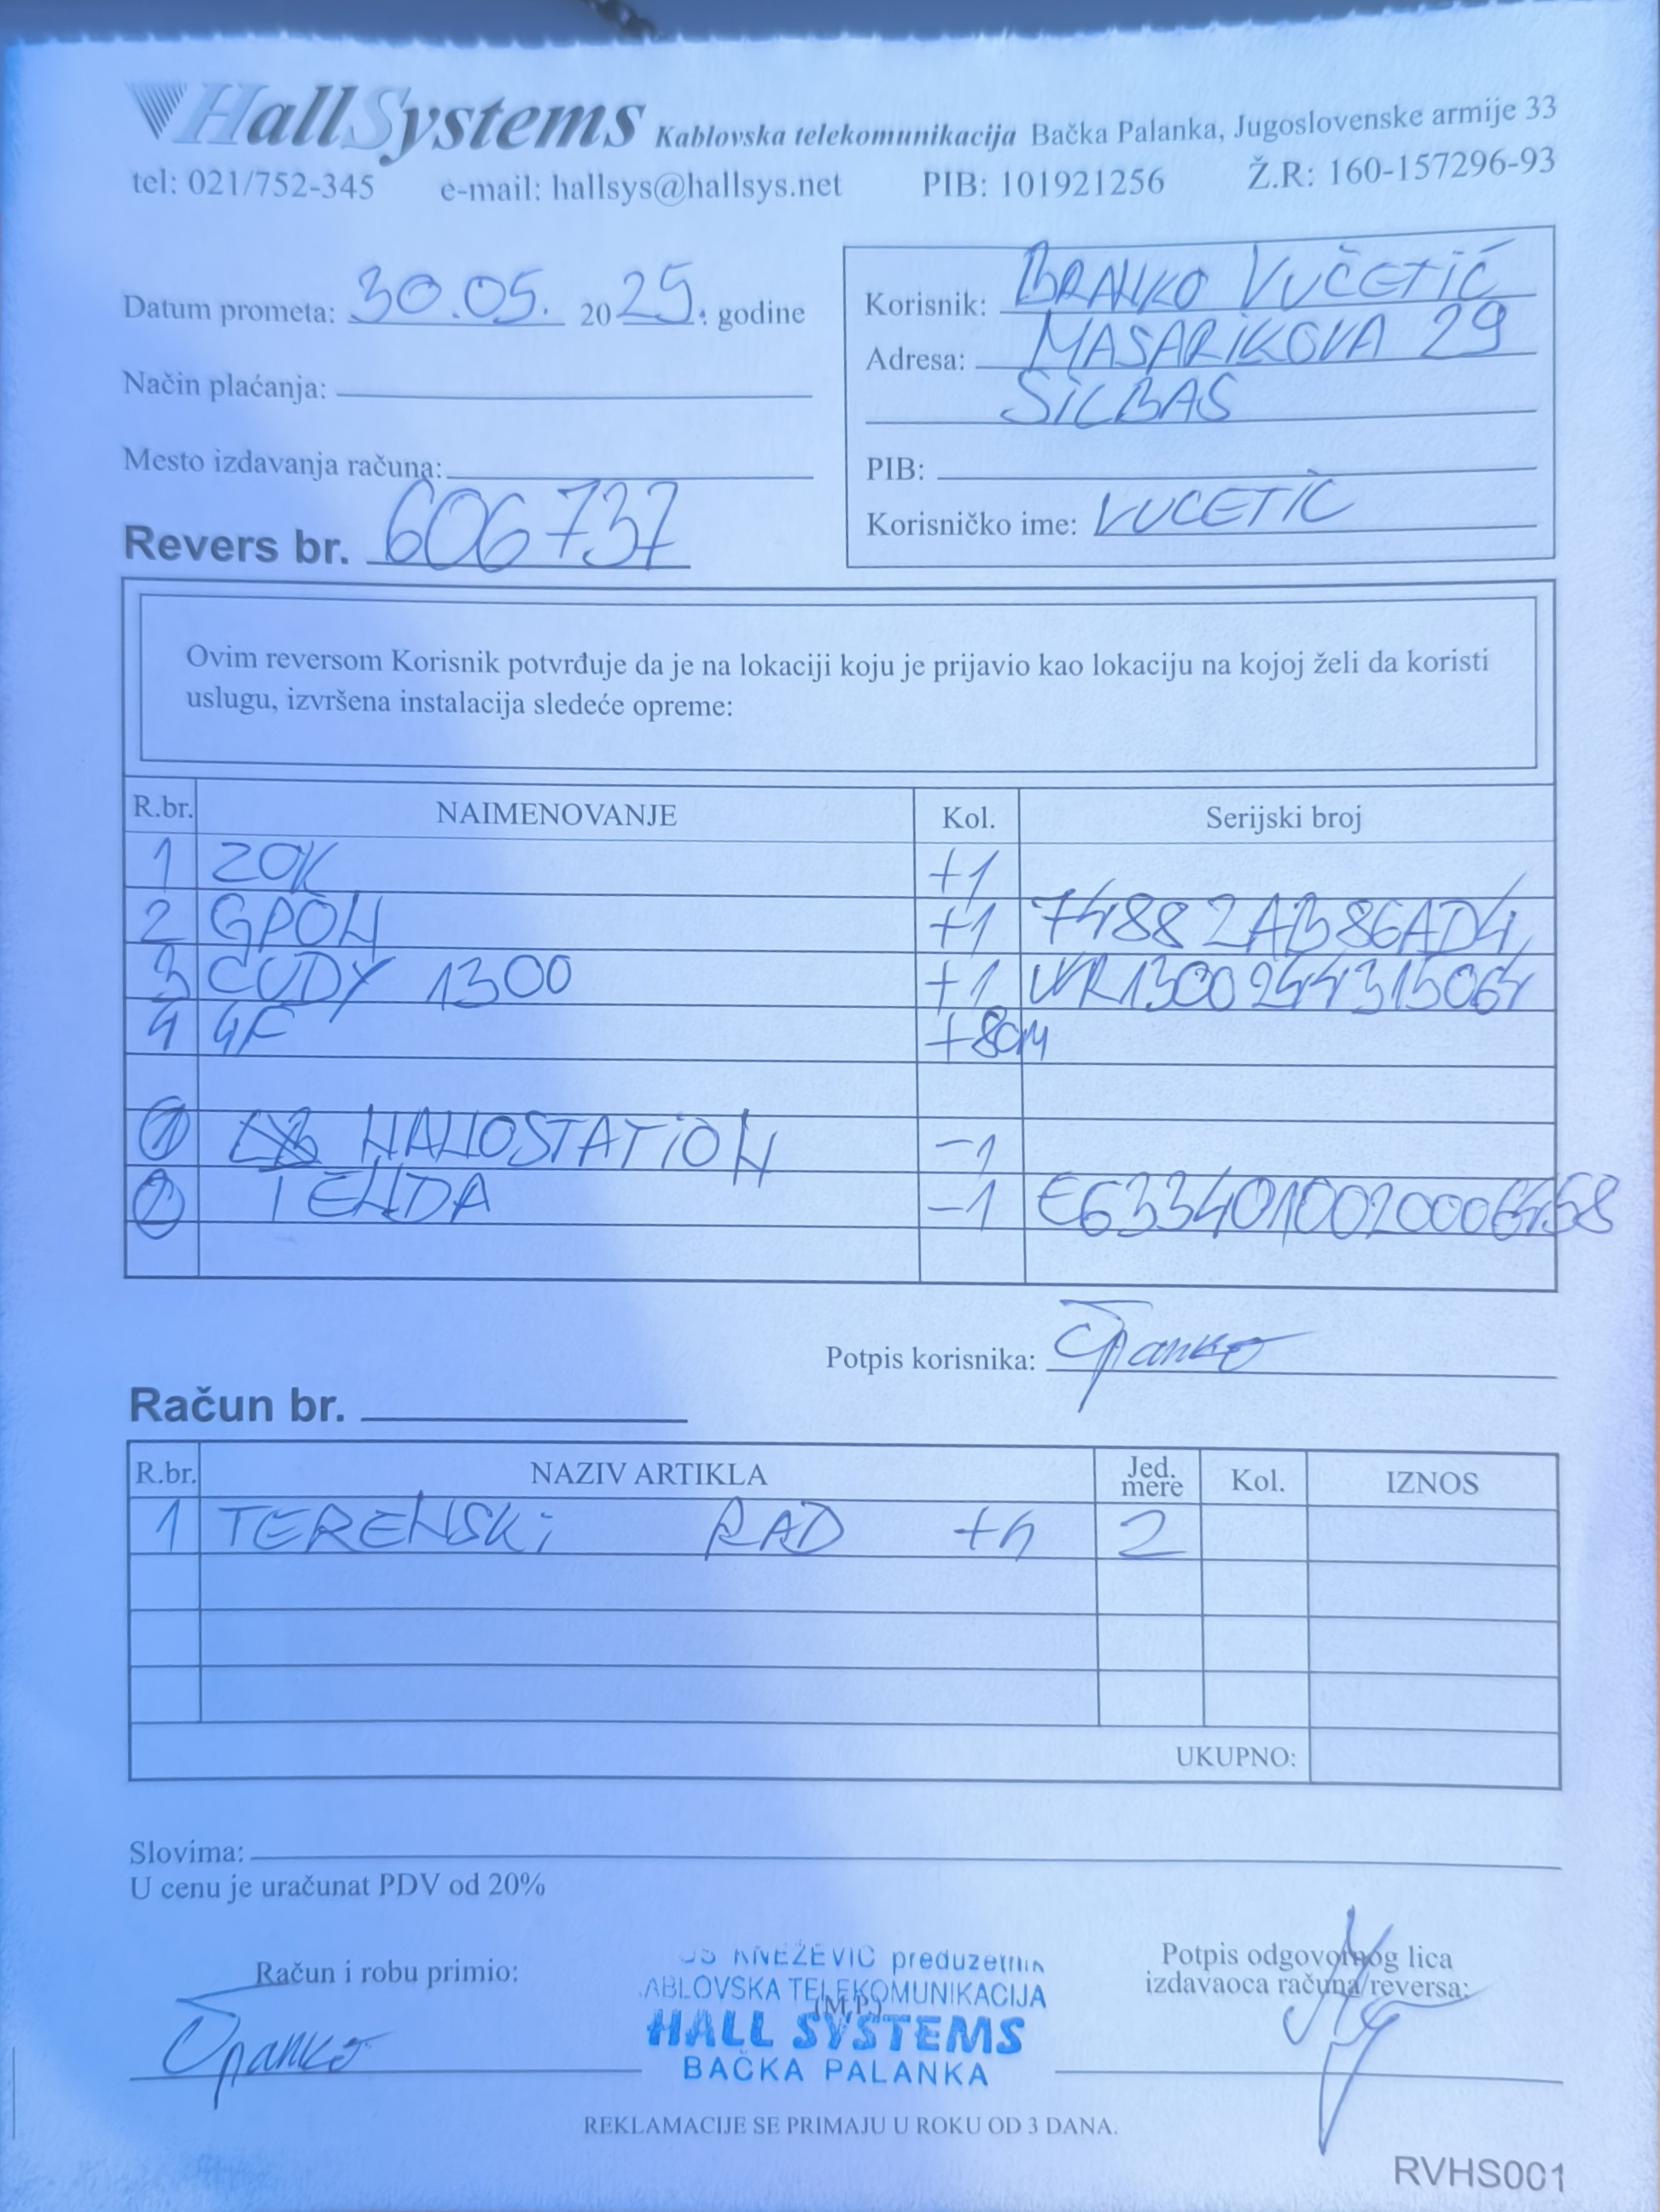 HallSystems Kablovska telekomunikacija Bačka Palanka, Jugoslovenske armije 33
tel: 021/752-345 e-mail: hallsys@hallsys.net PIB: 101921256 Ž.R: 160-157296-93
Datum prometa: 30.05. 2025. godine
Način plaćanja:
Mesto izdavanja računa:
Revers br. 606737
Korisnik: BRANKO VUČETIĆ
Adresa: MASARIKOVA 29
SILBAŠ
PIB:
Korisničko ime: VUCETIC
Ovim reversom Korisnik potvrđuje da je na lokaciji koju je prijavio kao lokaciju na kojoj želi da koristi
uslugu, izvršena instalacija sledeće opreme:
R.br. NAIMENOVANJE Kol. Serijski broj
1 ZOK +1
2 GPON +1 74882AB86AD4
3 CUDY 1300 +1 WR1300244315064
4 4F +80M
1 NANOSTATION -1
2 TENDA -1 E6334010020006458
Potpis korisnika: Бранко
Račun br.
R.br. NAZIV ARTIKLA Jed. mere Kol. IZNOS
1 TERENSKI RAD +h 2
UKUPNO:
Slovima:
U cenu je uračunat PDV od 20%
Račun i robu primio:
Бранко
KNEŽEVIĆ preduzetnik
ABLOVSKA TELEKOMUNIKACIJA
(M.P.)
HALL SYSTEMS
BAČKA PALANKA
Potpis odgovornog lica
izdavaoca računa/reversa:
REKLAMACIJE SE PRIMAJU U ROKU OD 3 DANA.
RVHS001